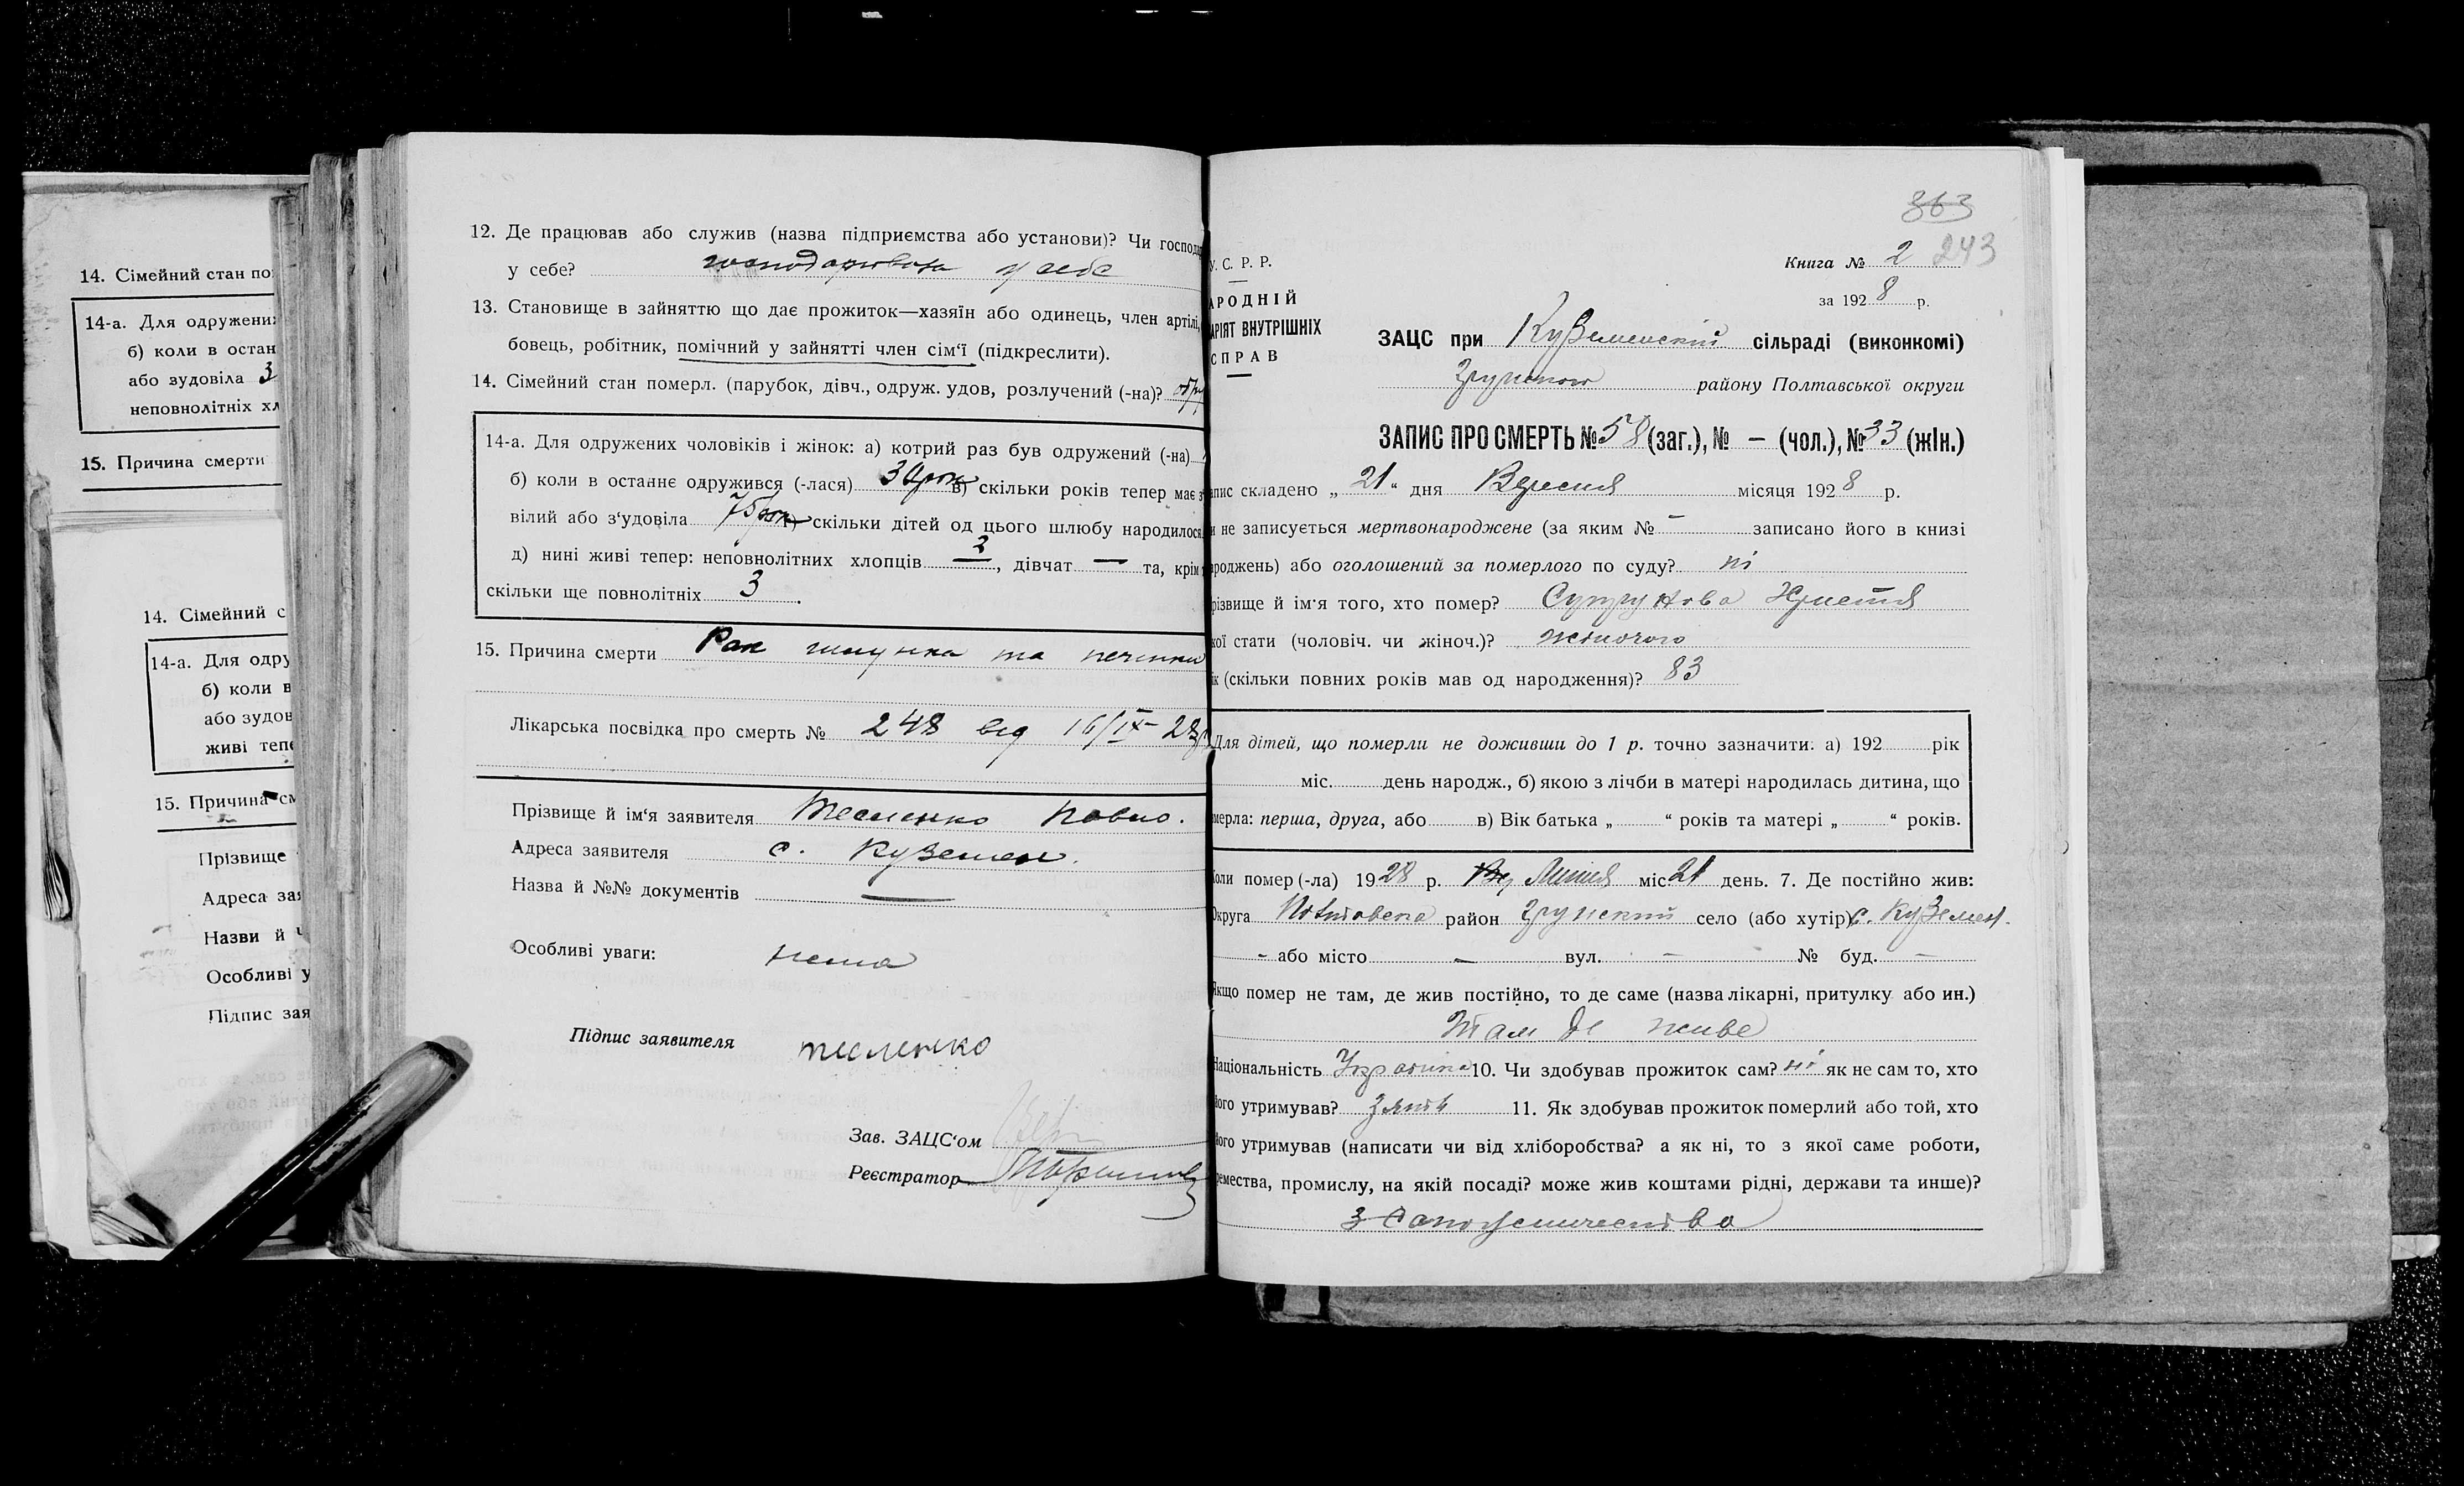 14. Сімейний стан по
14-а. Для одружених
б) коли в остан
або зудовіла 3
неповнолітніх хл
15. Причина смерти
14. Сімейний с
14-а. Для одру
б) коли в
або зудов
живі тепе
15. Причина см
Прізвище
Адреса зая
Назви й
Особливі у
Підпис зая
12. Де працював або служив (назва підприємства або установи)? Чи господар
у себе? у себе
13. Становище в зайняттю що дає прожиток—хазяїн або одинець, член артілі,
бовець, робітник, помічний у зайнятті член сім'ї (підкреслити).
14. Сімейний стан померл. (парубок, дівч., одруж. удов, розлучений (-на)?
14-а. Для одружених чоловіків і жінок: а) котрий раз був одружений (-на)
б) коли в останнє одружився (-лася) в) скільки років тепер має з
вілий або з'удовіла скільки дітей од цього шлюбу народилося
д) нині живі тепер: неповнолітних хлопців — , дівчат — та, крім
скільки ще повнолітніх 3.
15. Причина смерти Рак шлунка та печинки
Лікарська посвідка про смерть № 248 від 16/IX-28р
Прізвище й ім'я заявителя Тесленко Павло.
Адреса заявителя с. Куземен.
Назва й №№ документів —
Особливі уваги: нема
Підпис заявителя тесленко
Зав. ЗАЦС'ом
Реєстратор
363
243
Книга № 2
за 1928 р.
У. С. Р. Р.
АРОДНІЙ
АРІЯТ ВНУТРІШНІХ
СПРАВ
ЗАЦС при Куземенскій сільраді (виконкомі)
Грунского району Полтавської округи
ЗАПИС ПРО СМЕРТЬ № 58 (заг.), № — (чол.), № 33 (жін.)
апис складено „ 21 “ дня Вересня місяця 1928 р.
и не записується мертвонароджене (за яким № - записано його в книзі
ароджень) або оголошений за померлого по суду? ні
різвище й ім'я того, хто помер? Супрунова Христя
кої стати (чоловіч. чи жіноч.)? жіночого
ік (скільки повних років мав од народження)? 83
Для дітей, що померли не доживши до 1 р. точно зазначити: а) 192 рік
міс. день народж., б) якою з лічби в матері народилась дитина, що
мерла: перша, друга, або в) Вік батька „ “ років та матері „ “ років.
Коли помер (-ла) 1928 р. Вер Липня міс 21 день. 7. Де постійно жив:
Округа Полтавска район Грунский село (або хутір) с. Куземен.
- або місто — вул. — № буд. —
Якщо помер не там, де жив постійно, то де саме (назва лікарні, притулку або ин.)
Там де живе
Національність Україник 10. Чи здобував прожиток сам? ні як не сам то, хто
його утримував? зять 11. Як здобував прожиток померлий або той, хто
його утримував (написати чи від хліборобства? а як ні, то з якої саме роботи,
ремества, промислу, на якій посаді? може жив коштами рідні, держави та инше)?
з